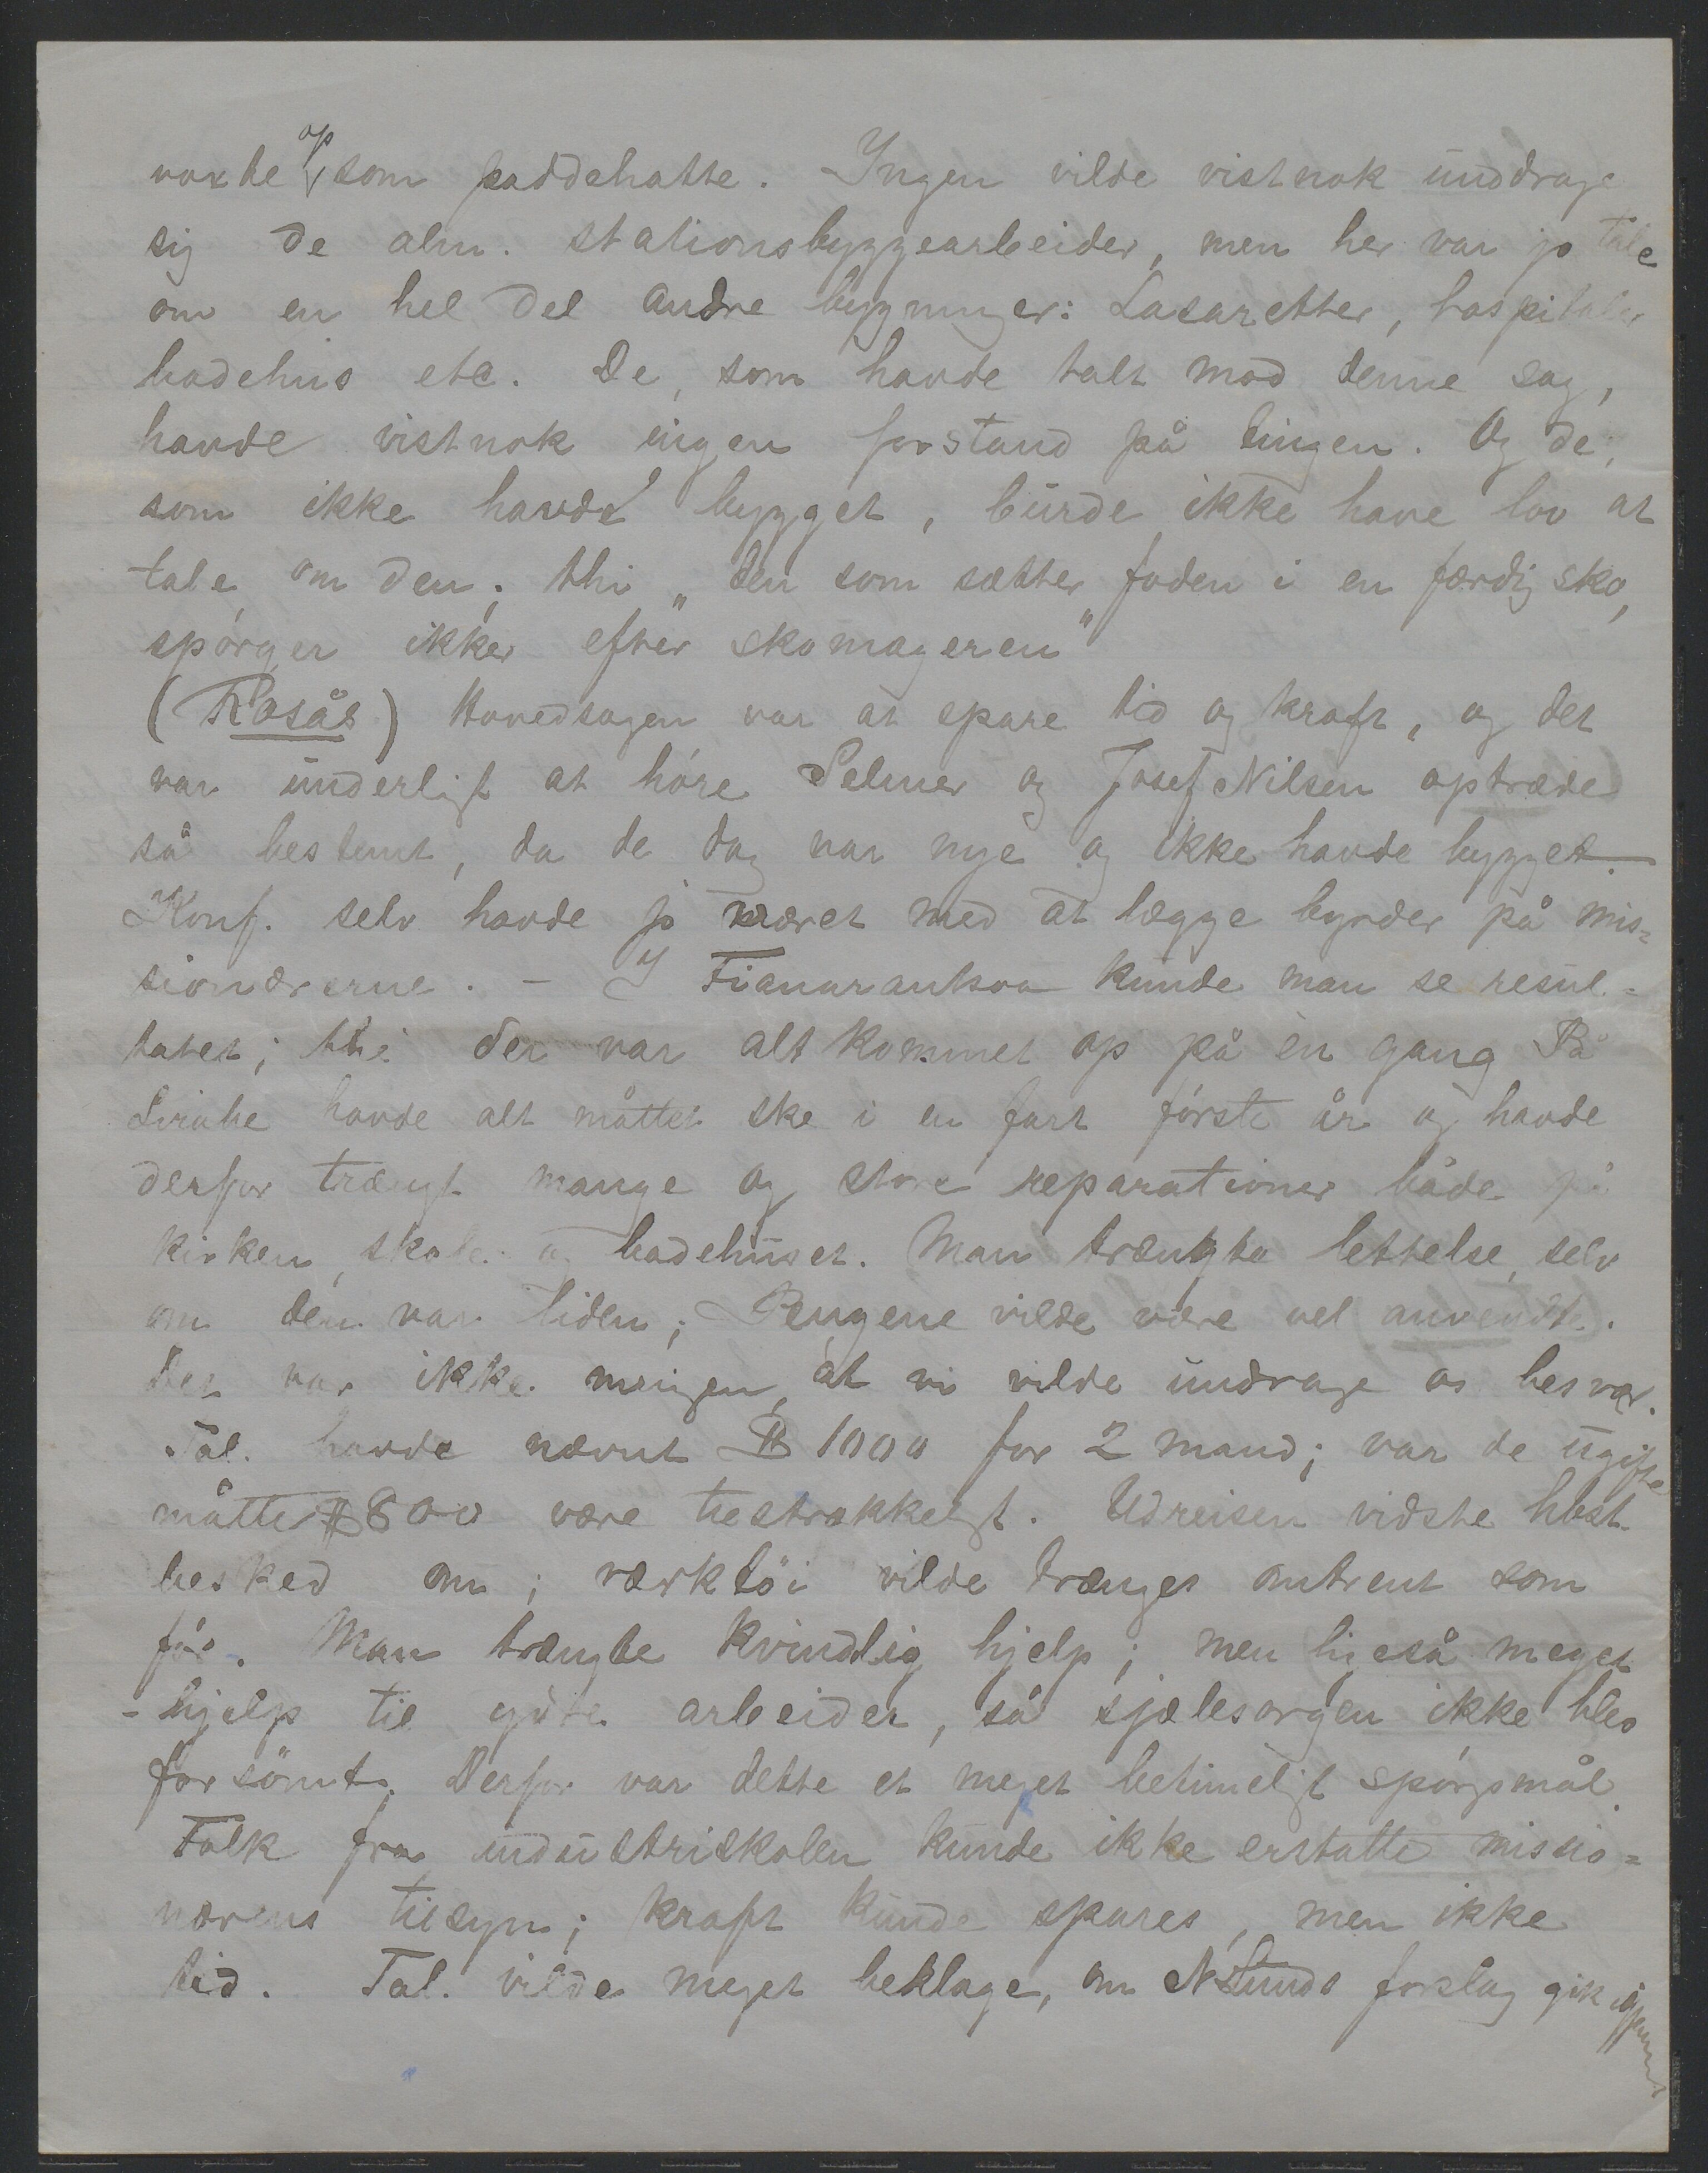 voxte op som paddehatte. Ingen vilde vistnok unddrage
sig de alm. stationsbyggearbeider, men her var jo tale
om en hel del andre bygninger: Lasaretter, hospitaler
badehus etc. De, som havde talt mod denne sag,
havde vistnok ingen forstand på tingen. Og de,
som ikke havde bygget, burde ikke have lov at
tale om den; thi „den som sætter foden i en færdig sko,
spørger ikke efter skomageren"
(Rosås) Hovedsagen var at spare tid og kraft, og det
var underligt at høre Selmer og Josef Nilsen optræde
så bestemt, da de dog var nye og ikke havde bygget.
Konf. selv havde jo været med at lægge byrder på mis=
sionærerne. - I Fianarantsoa kunde man se resul=
tatet; thi der var alt kommet op på én gang På
Sirabe havde alt måttet ske i en fart første år og havde
derfor trængt mange og store reparationer både på
kirken, skole og badehuset. Man trængte lettelse, selv
om den var liden; Pengene vilde være vel anvendte.
Det var ikke meningen, at vi vilde undrage os besvær.
Tal. havde nævnt $ 1000 for 2 mand; var de ugifte
måtte $ 800 være tilstrækkeligt. Udreisen vidste best.
besked om; værktøi vilde trænges omtrent som
før. Man trængte kvindlig hjelp; men ligeså meget
hjelp til ydre arbeider, så sjælesorgen ikke blev
forsömt. Derfor var dette et meget betimeligt spørgsmål.
Folk fra industriskolen kunde ikke erstatte missio=
nærens tilsyn; kraft kunde spares, men ikke
tid. Tal. vilde meget beklage, om N Lunds forslag gik igjennem